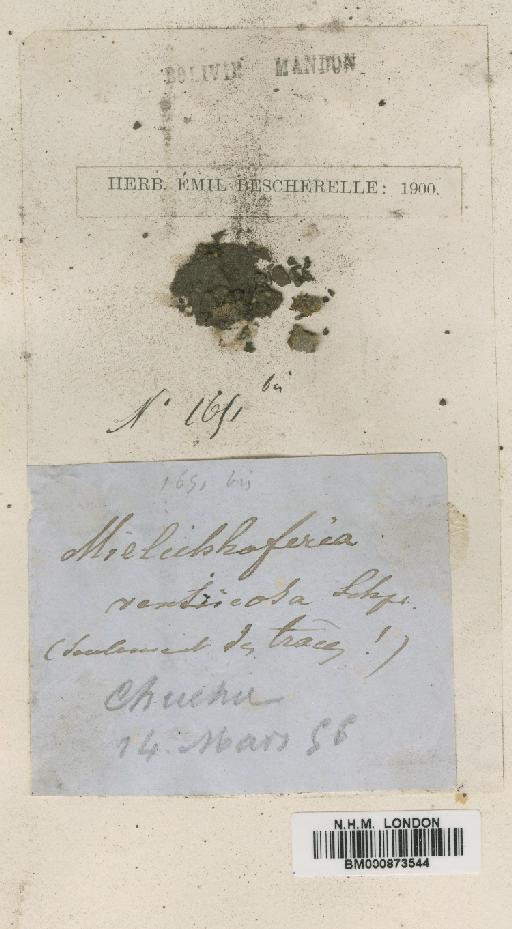 BOLIVIE MANDON
HERB. ÉMIL BESCHERELLE: 1900.
N° 1651 bis
1651 bis
Mielichhoferia
ventricosa Schpr.
(seulement des traces!)
Chuchu
14 Mars 56
N.H.M. LONDON
BM000873544